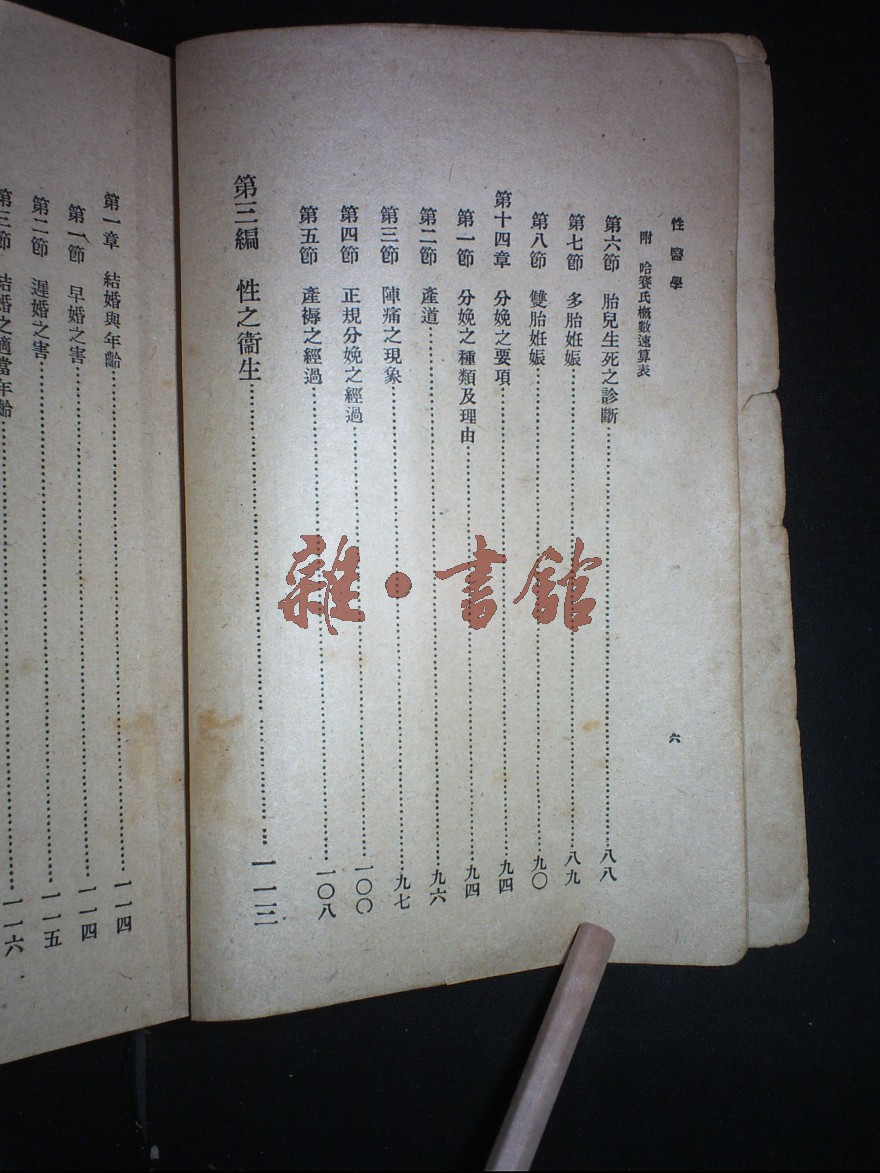 性醫學
附 哈賽氏概數速算表
第六節 胎兒生死之診斷……八八
第七節 多胎妊娠……八九
第八節 雙胎妊娠……九〇
第十四章 分娩之要項……九四
第一節 分娩之種類及理由……九四
第二節 產道……九六
第三節 陣痛之現象……九七
第四節 正規分娩之經過……一〇〇
第五節 產褥之經過……一〇八
第三編 性之衞生……一一三
六
第一章 結婚與年齡……一一四
第一節 早婚之害……一一四
第二節 遲婚之害……一一五
第三節 結婚之適當年齡……一一六
雜·書館